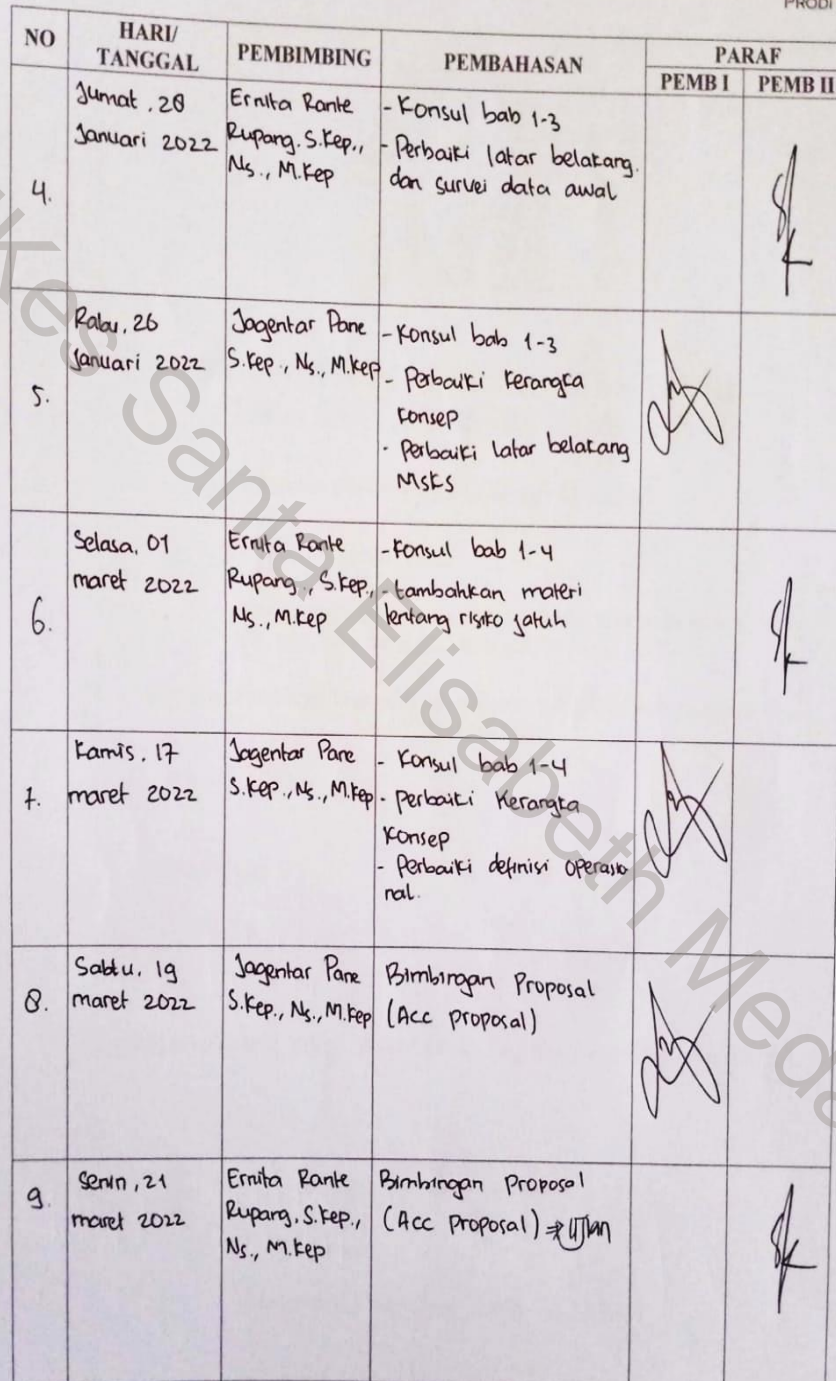 PRODI
NO
HARI/
TANGGAL
PEMBIMBING
PEMBAHASAN
PARAF
PEMB I
PEMB II
4.
Jumat, 28
Januari 2022
Ernita Rante
Rupang. S.Kep.,
Ns., M.Kep
- Konsul bab 1-3
- Perbaiki latar belakang.
dan survei data awal
5.
Rabu, 26
Januari 2022
Jagentar Pane
S.Kep., Ns., M.Kep
- Konsul bab 1-3
- Perbaiki Kerangka
Konsep
- Perbaiki latar belakang
MSKS
6.
Selasa, 01
maret 2022
Ernita Rante
Rupang., S.Kep.,
Ns., M.Kep
- Konsul bab 1-4
- tambahkan materi
tentang risiko jatuh
7.
Kamis, 17
maret 2022
Jagentar Pane
S.Kep., Ns., M.Kep
- Konsul bab 1-4
- perbaiki Kerangka
Konsep
- Perbaiki definisi operasio
nal.
8.
Sabtu, 19
maret 2022
Jagentar Pane
S.Kep., Ns., M.Kep
Bimbingan Proposal
(Acc proposal)
9.
Senin, 21
maret 2022
Ernita Rante
Rupang, S.Kep.,
Ns., M.Kep
Bimbingan Proposal
(Acc proposal) ⇒ Ujian
Kes Santa Elisabeth Meda